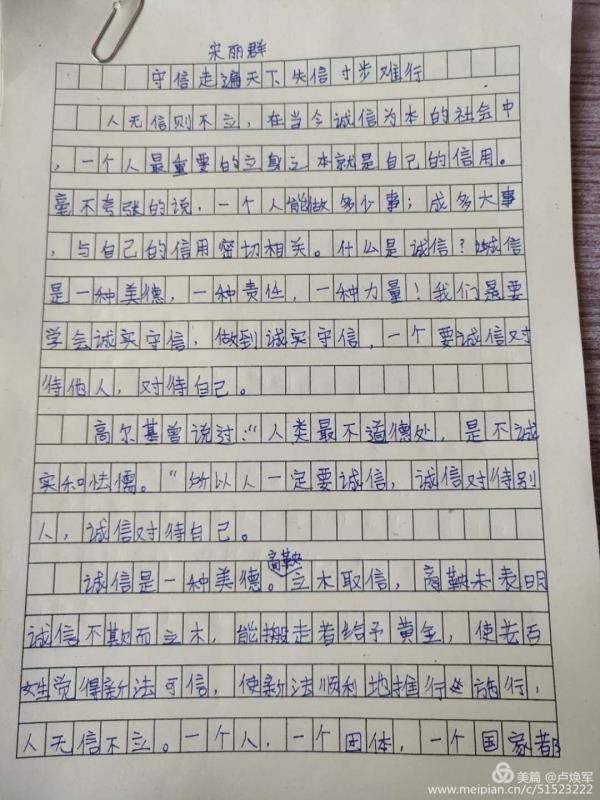 宋丽群
守信走遍天下失信寸步难行
人无信则不立，在当今诚信为本的社会中
，一个人最重要的立身之本就是自己的信用。
毫不夸张的说，一个人能做多少事；成多大事
，与自己的信用密切相关。什么是诚信？诚信
是一种美德，一种责任，一种力量！我们是要
学会诚实守信，做到诚实守信，一个要诚信对
待他人，对待自己。
高尔基曾说过：“人类最不道德处，是不诚
实和怯懦。”所以人一定要诚信，诚信对待别
人，诚信对待自己。
诚信是一种美德。商鞅立木取信，商鞅未表明
诚信不欺而立木，能搬走者给予黄金，使老百
姓觉得新法可信，使新法顺利地推行施行，
人无信不立。一个人，一个团体，一个国家都
美篇 @卢焕军
www.meipian.cn/c/51523222